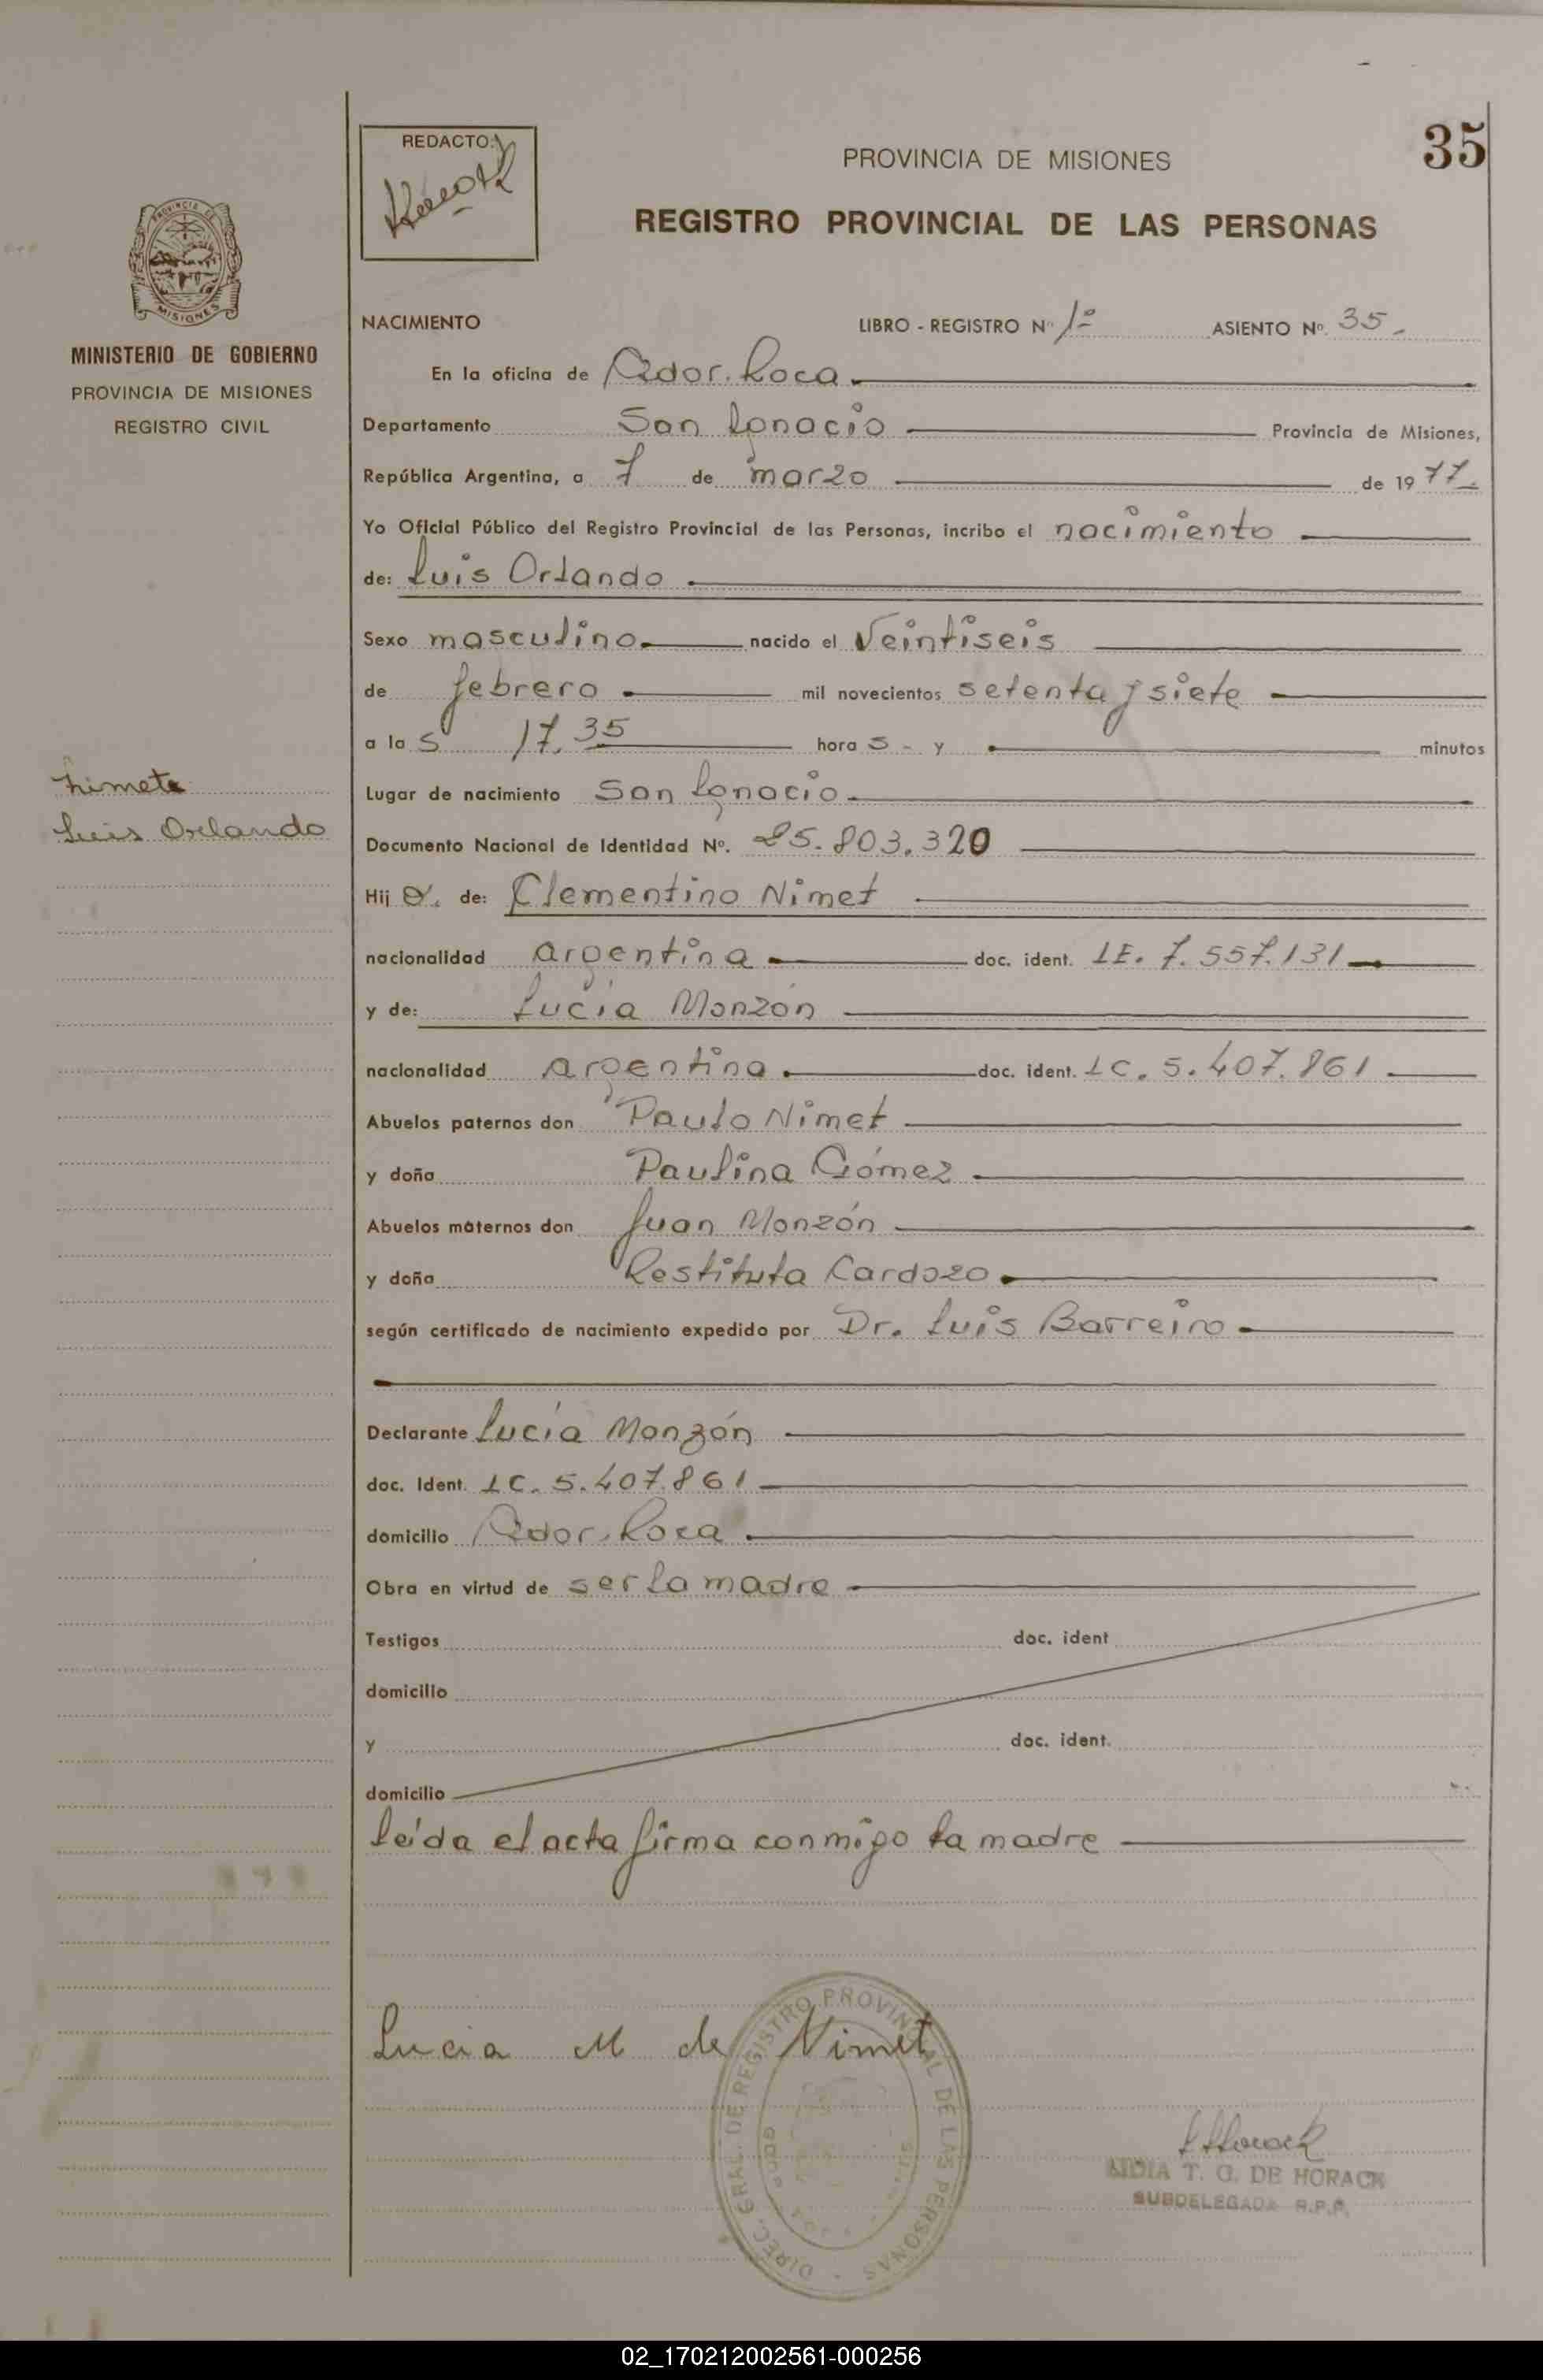 35
REDACTO:
Horack
PROVINCIA DE MISIONES
REGISTRO PROVINCIAL DE LAS PERSONAS
PROVINCIA DE
MISIONES
MINISTERIO DE GOBIERNO
PROVINCIA DE MISIONES
REGISTRO CIVIL
NACIMIENTO LIBRO - REGISTRO Nº 1º ASIENTO Nº. 35.
En la oficina de Gdor. Roca.
Departamento San Ignacio Provincia de Misiones,
República Argentina, a 7 de marzo de 1977.
Yo Oficial Público del Registro Provincial de las Personas, incribo el nacimiento
de: Luis Orlando
Sexo masculino. nacido el Veintiseis
de febrero mil novecientos setenta y siete
a las 17.35 horas - y minutos
Nimet
Luis Orlando
Lugar de nacimiento San Ignacio.
Documento Nacional de Identidad Nº. 25.803.320
Hijo. de: Clementino Nimet
nacionalidad argentina doc. ident. LE. 7.557.131
y de: Lucía Monzón
nacionalidad argentina. doc. ident. LC. 5.407.861
Abuelos paternos don Paulo Nimet
y doña Paulina Gómez
Abuelos maternos don Juan Monzón
y doña Restituta Cardozo.
según certificado de nacimiento expedido por Dr. Luis Barreiro
Declarante Lucía Monzón
doc. Ident. LC. 5.407.861
domicilio Gdor. Roca
Obra en virtud de ser la madre
Testigos doc. ident
domicilio
y doc. ident.
domicilio
leída el acta firma conmigo la madre
Lucia M de Nimet
DIREC. GRAL. DE REGISTRO PROVINCIAL DE LAS PERSONAS
LHorack
LIDIA T. G. DE HORACK
SUBDELEGADA R.P.P.
02_170212002561-000256